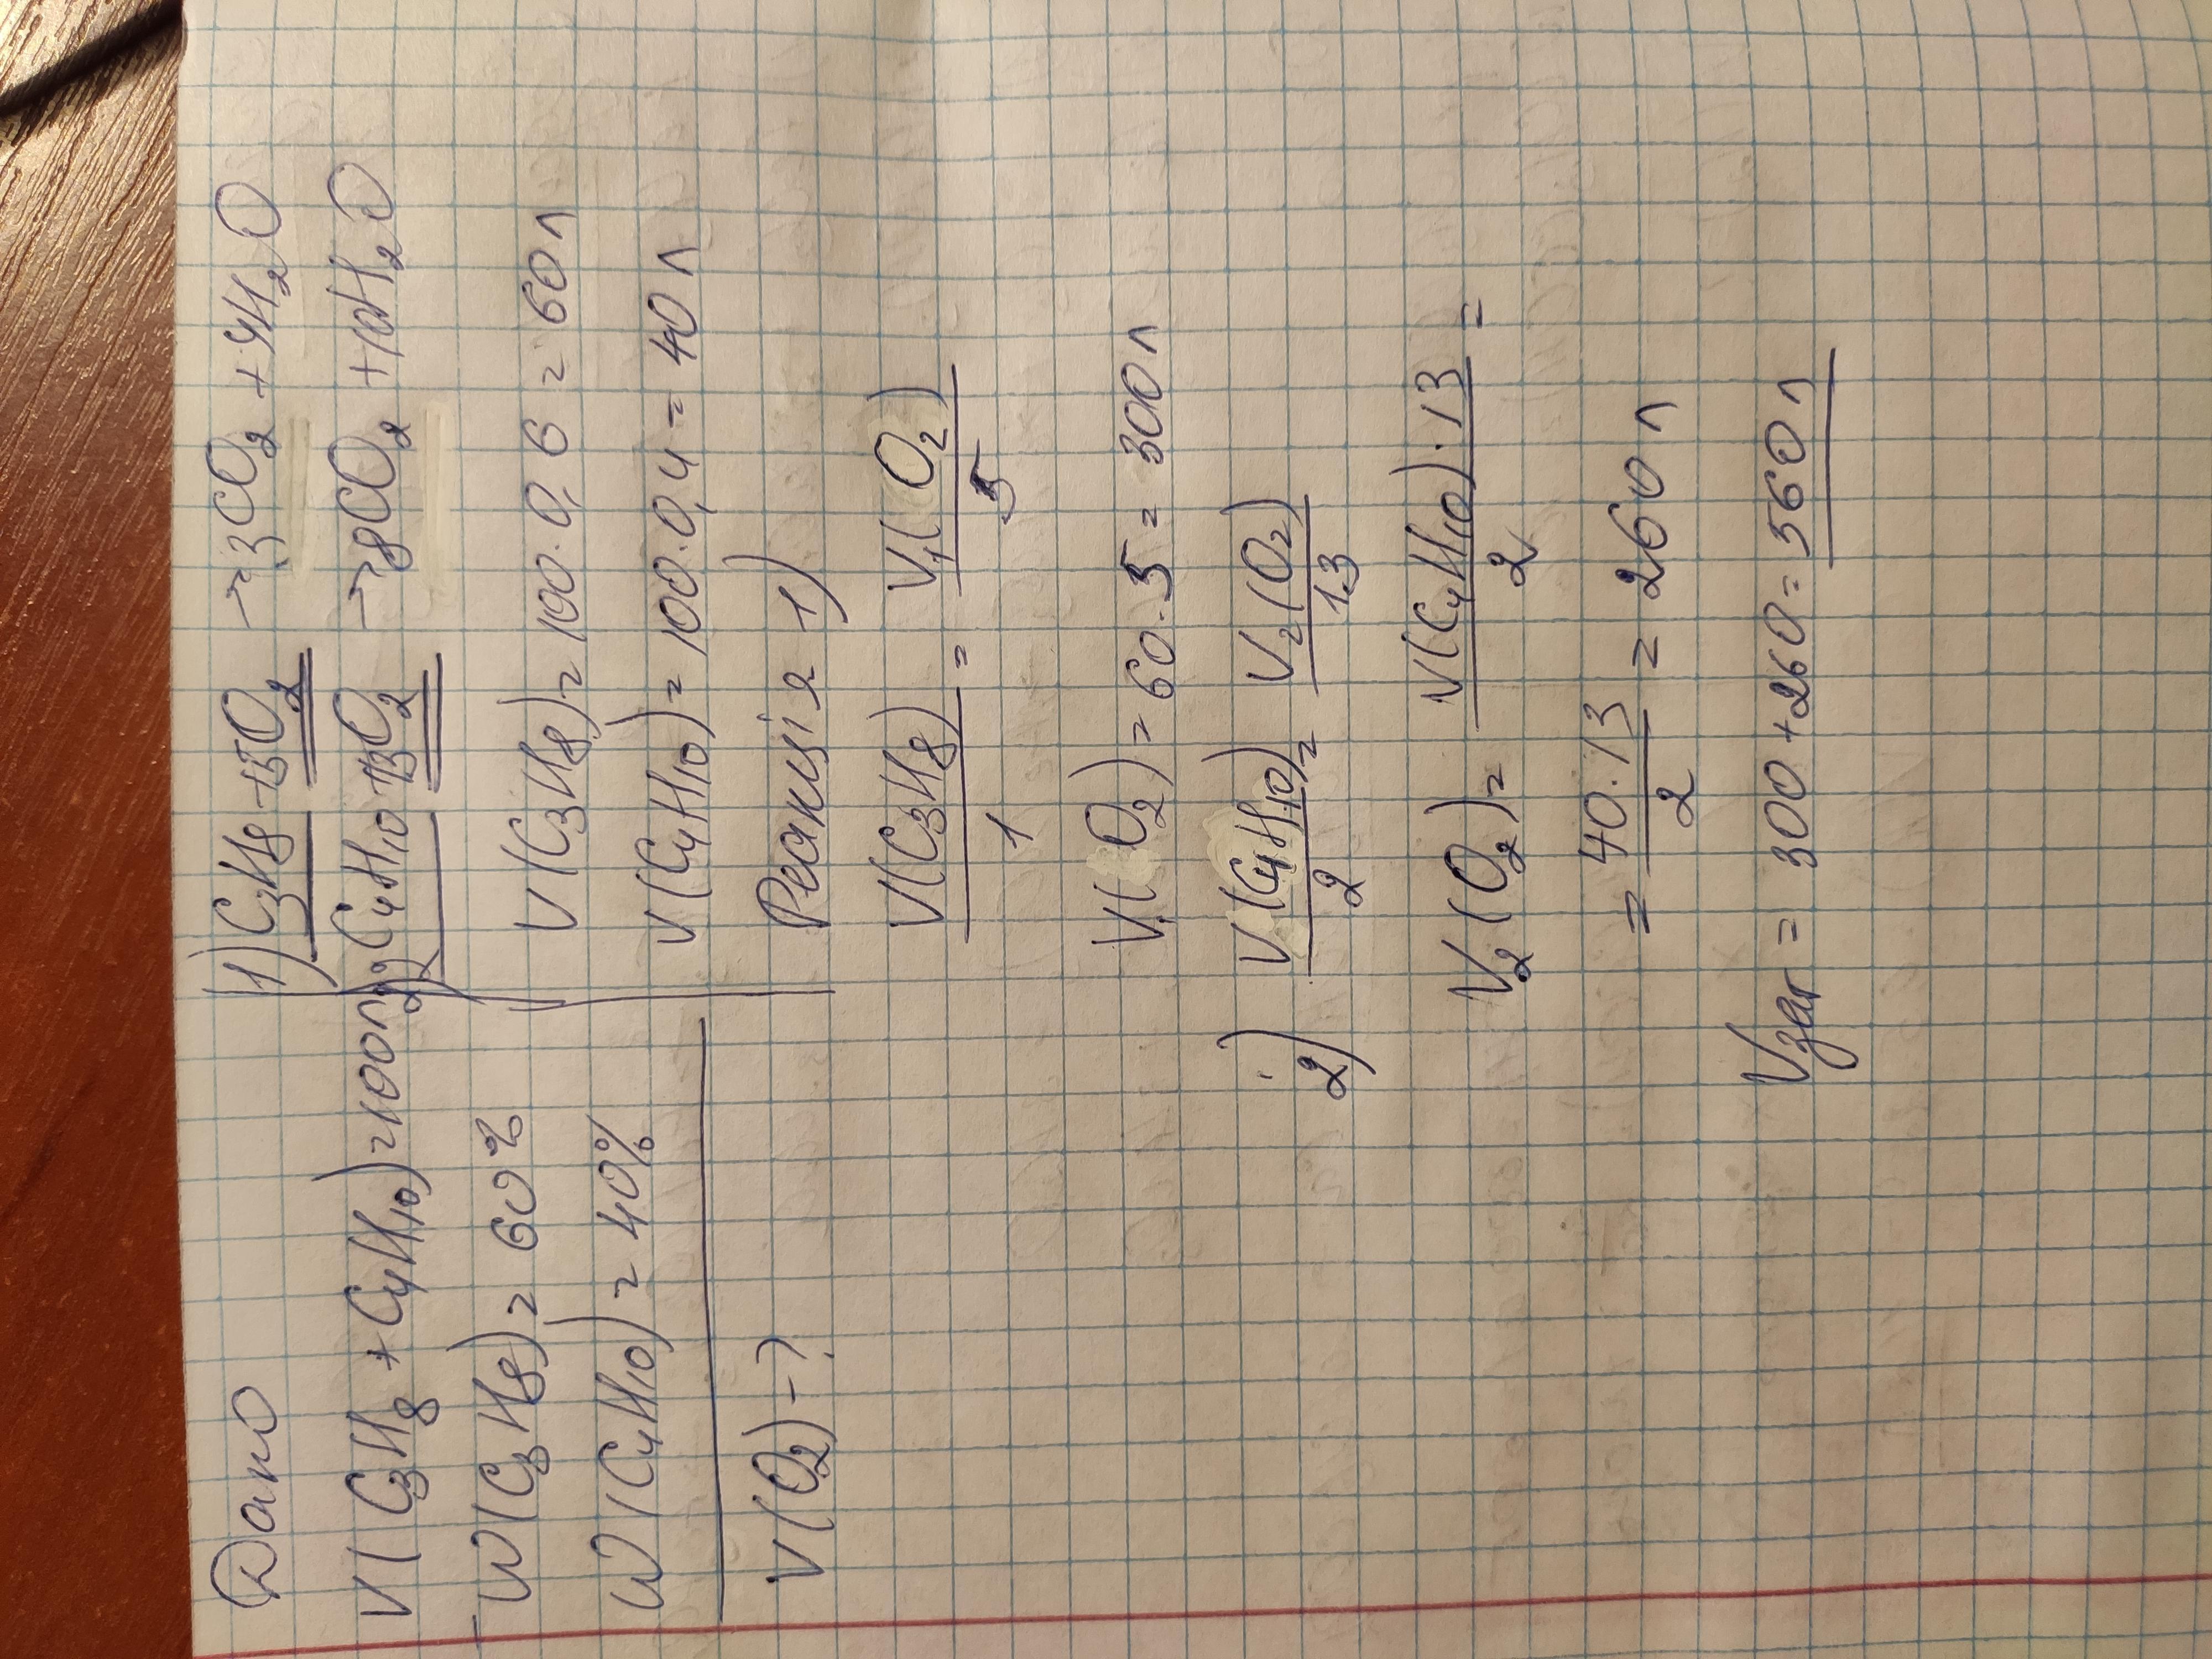 Дано
V(C₃H₈ + C₄H₁₀) = 100л
W(C₃H₈) = 60%
W(C₄H₁₀) = 40%
V(O₂) - ?
1) C₃H₈ + 5O₂ → 3CO₂ + 4H₂O
2) 2C₄H₁₀ + 13O₂ → 8CO₂ + 10H₂O
V(C₃H₈) = 100 · 0,6 = 60л
V(C₄H₁₀) = 100 · 0,4 = 40 л
Реакція 1)
V(C₃H₈)/1 = V₁(O₂)/5
V₁(O₂) = 60 · 5 = 300л
2) V(C₄H₁₀)/2 = V₂(O₂)/13
V₂(O₂) = V(C₄H₁₀) · 13/2 =
= 40 · 13/2 = 260 л
Vзаг = 300 + 260 = 560 л